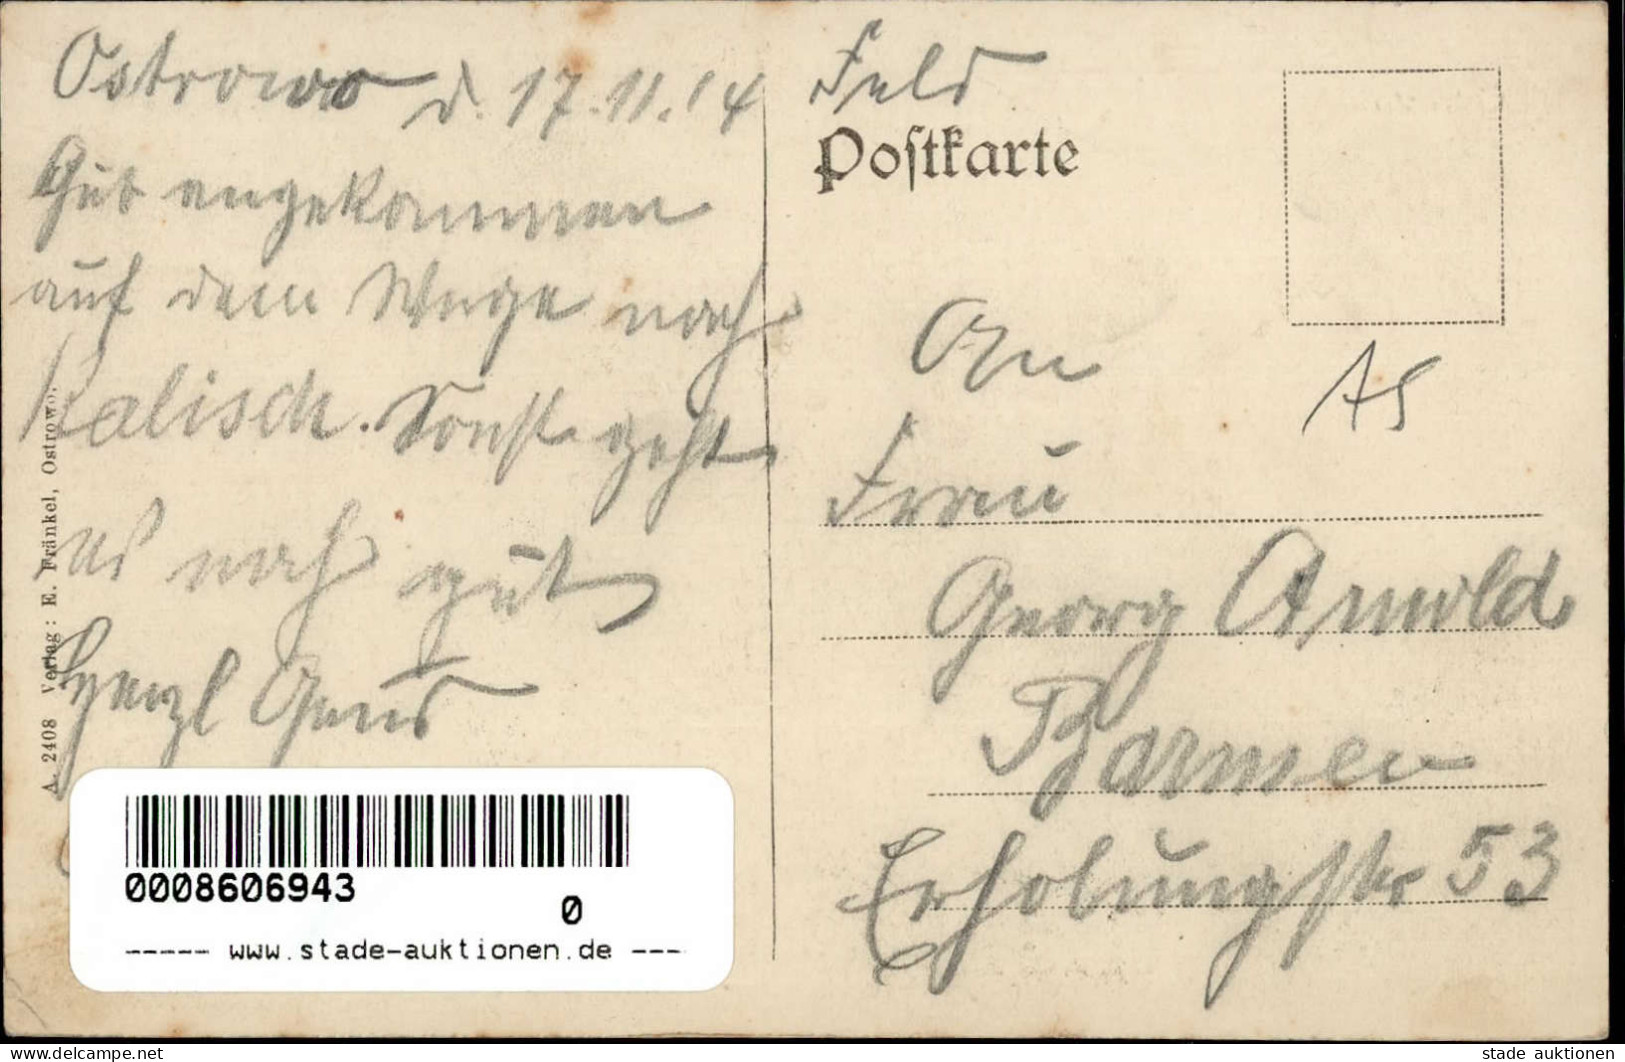 Ostrowo d. 17.11.14
Gut angekommen
auf dem Wege nach
Kalisch. Sonst geht
es noch gut
Herzl Gruß
A. 2408 Verlag: E. Fränkel, Ostrowo.
Feld
Postkarte
An
Frau
Georg Arnold
Barmen
Erholungstr 53
AS
0008606943
0
----- www.stade-auktionen.de ---
www.delcampe.net
stade auktionen